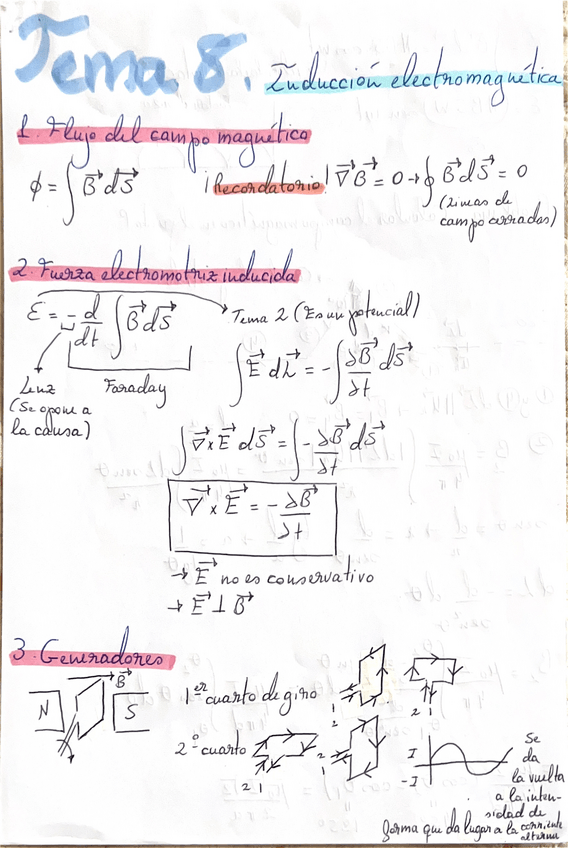 Tema 8. Inducción electromagnética
1. Flujo del campo magnético
ϕ = ∫ B⃗ dS⃗ ¡Recordatorio! ∇⃗B⃗ = 0 → ∮ B⃗ dS⃗ = 0
(Líneas de
campo cerradas)
2. Fuerza electromotriz inducida
Ɛ = - d/dt ∫ B⃗ dS⃗ → Tema 2 (Es un potencial)
Lenz
(Se opone a
la causa)
Faraday
∫ E⃗ dL⃗ = - ∫ ∂B⃗/∂t dS⃗
∫ ∇⃗ × E⃗ dS⃗ = ∫ - ∂B⃗/∂t dS⃗
∇⃗ × E⃗ = - ∂B⃗/∂t
→ E⃗ no es conservativo
→ E⃗ ⊥ B⃗
3. Generadores
N B⃗ S
1er cuarto de giro
1 2
2 1
2º cuarto
2 1
2 1
I
-I
Se
da
la vuelta
a la inten-
sidad de
forma que da lugar a la corriente
alterna